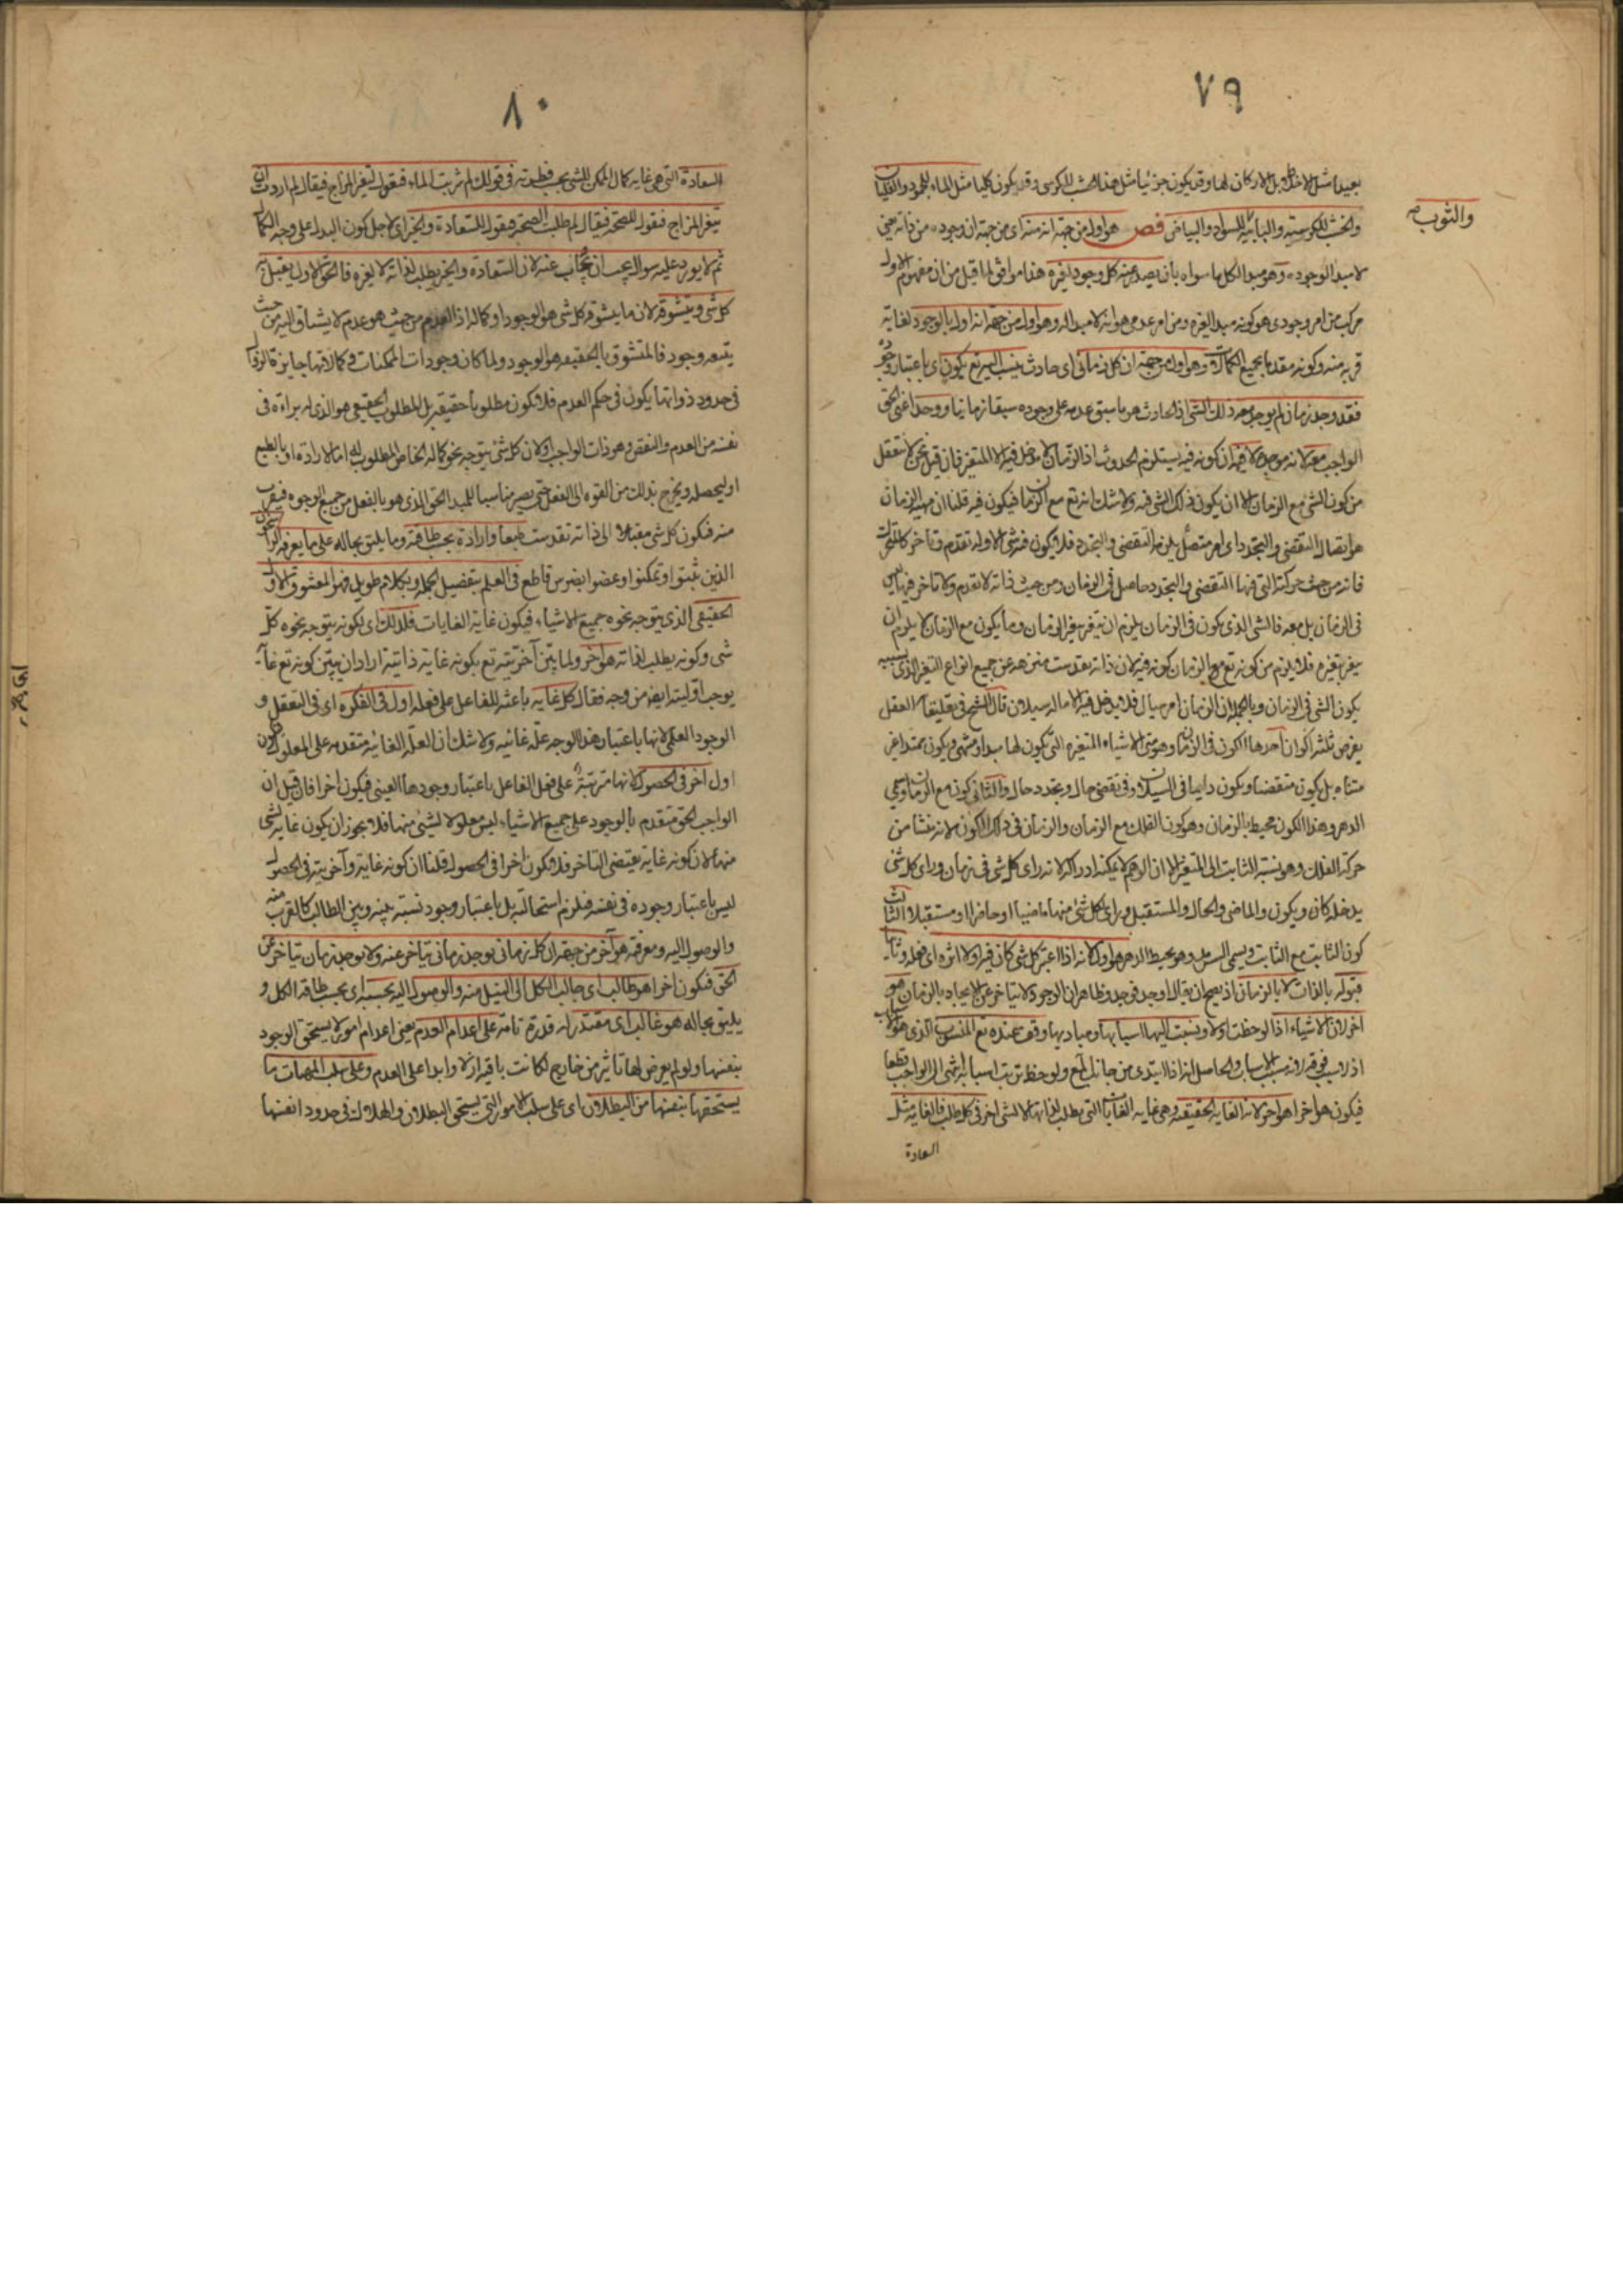 ٧٩
بعيدا مثل الاخلاط بل الاركان لها وقد يكون جزئيا مثل هذا الخشب للكرسى وقد يكون كليا مثل الماء للجمود والغليان
والثوب صح
والخشب للكرسية والبابية للسواد والبياض فص هو اول من جهة انه منه اى من جهة ان وجوده من ذاته يعنى
لا مبدا لوجوده وهو مبدا لكل ما سواه بان يصدر عنه كل وجود لغيره هذا موافق لما قيل من ان مفهوم الاول
مركب من امر وجودى هو كونه مبدا لغيره ومن امر عدمى هو انه لا مبدا له وهو اول من جهة انه اول بالوجود لغاية
قربه منه وكونه مقدما بجميع الكمالات وهو اول من جهة ان كل زمانى اى حادث ينسب اليه تع بكون اى باعتبار وجود
فقد وجد زمان لم يوجد معه ذلك الشئ اذ الحادث هو ما سبق عدمه على وجوده سبقا زمانيا ووجد اعنى الحق
الواجب معه لانه موجده لا فيه اذ كونه فيه يستلزم الحدوث اذ الزمان لا يدخل فيه الا المتغير فان قيل نحن لا نتعقل
من كون الشئ مع الزمان الا ان يكون ذلك الشئ فيه ولا شك انه تع مع الزمان فيكون فيه قلنا ان مهية الزمان
هو اتصال التقضى والتجدد اى امر متصل يلزمه التقضى والتجدد فلا يكون فيه شئ الا وله تقدم وتاخر كالمتحرك
فانه من حيث حركته التى فيها التقضى والتجدد حاصل فى الزمان ومن حيث ذاته لا تقدم ولا تاخر فيها ليس
فى الزمان بل معه فالشئ الذى يكون فى الزمان يلزم ان يتغير بتغير الزمان وما يكون مع الزمان لا يلزم ان
يتغير بتغيره فلا يلزم من كونه تع مع الزمان كونه فيه لان ذاته تقدست منزهة عن جميع انواع التغير الذى بسببه
يكون الشئ فى الزمان وبالجملة ان الزمان امر سيال فلا يدخل فيه الا ما له سيلان قال الشيخ فى تعليقاته العقل
يفرض ثلثة اكوان احدها الكون فى الزمان وهو متى الاشياء المتغيرة التى يكون لها مبدا ومنتهى ويكون مبتداه غير
منتهاه بل يكون متقضيا ويكون دايما فى السيلان وفى تقضى حال وتجدد حال والثانى كون مع الزمان ويسمى
الدهر وهذا الكون محيط بالزمان وهو كون الفلك مع الزمان والزمان فى ذلك الكون لانه ينشا من
حركة الفلك وهو نسبة الثابت الى المتغير الا ان الوهم لا يمكنه ادراكه لانه راى كل شئ فى زمان وراى كل شئ
يدخله كان ويكون والماضى والحال والمستقبل وراى لكل شئ منها ماضيا او حاضرا او مستقبلا والثالث
كون الثابت مع الثابت ويسمى السرمد وهو محيط بالدهر هو اول لانه اذا اعتبر كل شئ كان فيه اولا اثره اى فعله وثانيا
قبوله بالذات لا بالزمان اذ يصح ان يقال اوجد فوجد وظاهر ان الوجود لا يتاخر عن الايجاد بالزمان هو
اخر لان الاشياء اذا لوحظت اولا ونسبت اليها اسبابها ومباديها وقف عنده تع المنسوب الذى هو الاسباب
اذ ليس فوقه لانه سبب الاسباب والحاصل انه اذا ابتدئ من جانبك مع ولو حظ ترتب اسبابه انتهى الى الواجب قطعا
فيكون هو اخرا هو اخر لانه الغاية الحقيقة وهى غاية الغايات التى يطلب لذاتها لا لشئ اخر فى كل طلب فالغاية مثل
السعادة
٨٠
السعادة التى هى غاية كمال الممكن للشئ بحسب فطرته فى قولك لم شربت الماء فتقول لتغير المزاج فيقال لم اردت ان
يتغير المزاج فتقول للصحة فيقال لم طلبت الصحة فتقول للسعادة والخير اى لاجل كون البدن على وجه الكمال
ثم لا يورد عليه سوال يجب ان يجاب عنه لان السعادة والخير يطلب لذاته لا لغيره فالحق الاول يقبل اليه
كل شئ ويتشوقه لان ما يتشوقه كل شئ هو الوجود او كماله اذ العدم من حيث هو عدم لا يشتاق اليه من حيث
يتبعه وجود فالمتشوق بالحقيقة هو الوجود ولما كان وجودات الممكنات وكمالاتها جايزة الزوال
فى حدود ذواتها يكون فى حكم العدم فلا يكون مطلوبا حقيقة بل المطلوب الحقيقى هو الذى له براءة فى
نفسه من العدم والنقص وهو ذات الواجب ولان كل شئ يتوجه نحو كماله الخاص المطلوب له اما لارادة او بالطبع
او ليحصله ويخرج بذلك من القوه الى الفعل حتى يصير مناسبا للمبدا الحق الذى هو بالفعل من جميع الوجوه فيقرب
منه فيكون كل شئ مقبلا الى ذاته تقدست طبعا وارادة بحسب طاقته وما يليق بحاله على ما يعرفه الراسخون
الذين ثبتوا وتمكنوا وعضوا بضرس قاطع فى العلم بتفصيل الجملة وبكلام طويل فهو المعشوق الاول
الحقيقى الذى يتوجه نحوه جميع الاشياء فيكون غاية الغايات فلذلك اى لكونه يتوجه نحوه كل
شئ وكونه يطلب لذاته هو اخر ولما بين آخريته تع بكونه غاية ذاتية اراد ان يبين كونه تع غاية
يوجب اوليته ايضا من وجه فقال كل غاية باعثة للفاعل على فعله اول فى الفكرة اى فى التعقل و
الوجود العلمى لانها باعتبار هذا الوجه علة غائية ولا شك ان العلة الغائية متقدمة على المعلول فيكون
اول اخر فى الحصول لانها مترتبة على فعل الفاعل باعتبار وجودها العينى فيكون اخرا فان قيل ان
الواجب الحق متقدم بالوجود على جميع الاشياء ليس معلولا لشئ منها فلا يجوز ان يكون غاية لشئ
منها لان كونه غاية يقتضى التاخر فلا يكون اخرا فى الحصول قلنا ان كونه غاية وآخريته فى الحصول
ليس باعتبار وجوده فى نفسه فيلزم استحالته بل باعتبار وجود نسبته بينه وبين الطالب كالقرب منه
والوصول اليه ومعرفته هو آخر من جهة ان كل زمانى يوجد زمانى يتاخر عنه ولا يوجد زمان يتاخر عن
الحق فيكون اخرا هو طالب اى جالب الكل الى النيل منه والوصول اليه بحسبه اى بحسب طاقة الكل و
يليق بحاله هو غالب اى مقتدر له قدرة تامة على اعدام العدم يعنى اعدام امور لا يستحق الوجود
بنفسها ولو لم يعرض لها تاثير من خارج لكانت باقية ازلا وابدا على العدم وعلى سلب المهيات ما
يستحقها بنفسها من البطلان اى على سلب الامور التى يستحق البطلان والهلاك فى حدود انفسها